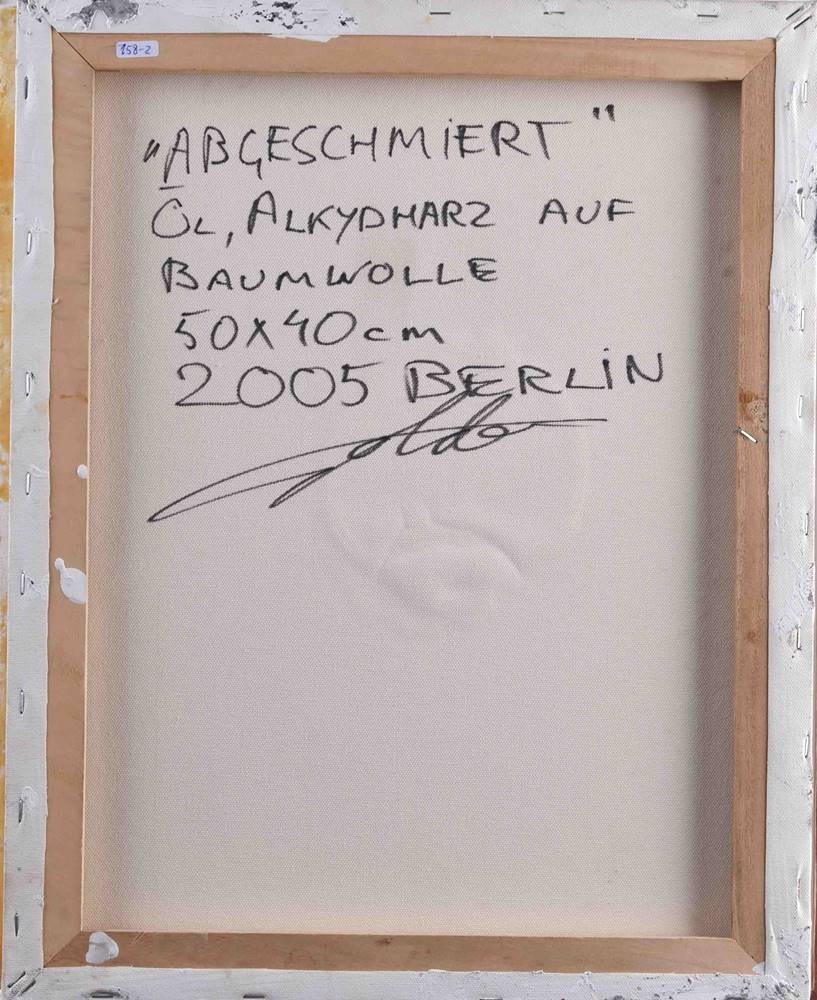 158-2
„ABGESCHMIERT"
ÖL, ALKYDHARZ AUF
BAUMWOLLE
50X40cm
2005 BERLIN